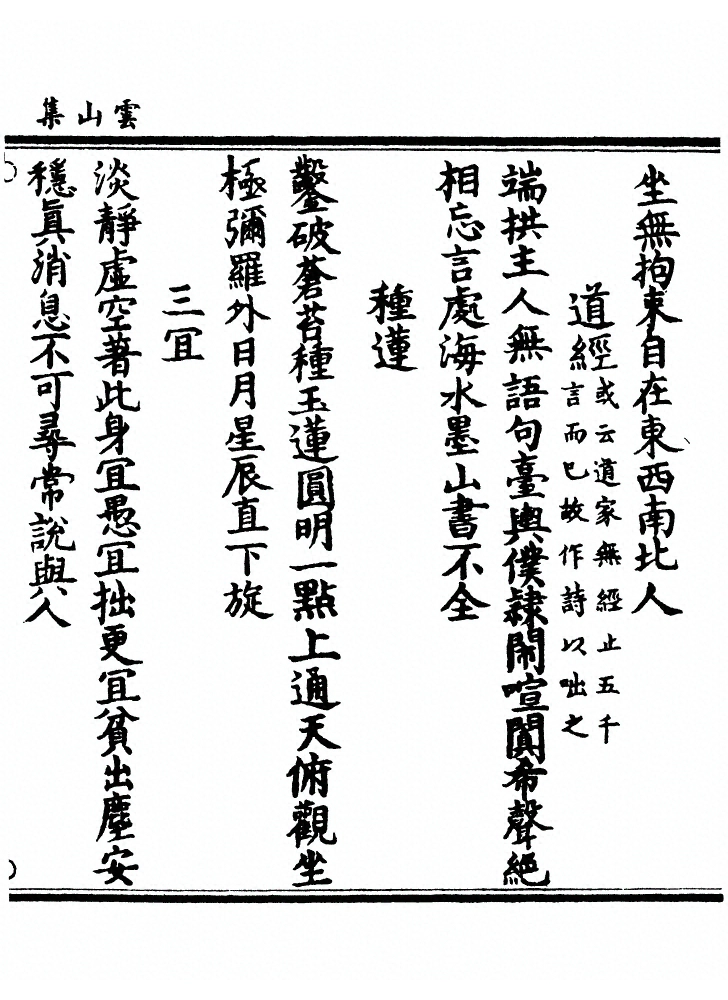 雲山集
坐無拘束自在東西南北人
道經或云道家無經止五千
言而已故作詩以咄之
端拱主人無語句臺輿僕隸鬧喧闐希聲絕
相忘言處海水墨山書不全
種蓮
鑿破蒼苔種玉蓮圓明一點上通天俯觀坐
極彌羅外日月星辰直下旋
三冝
淡靜虛空著此身冝愚冝拙更冝貧出塵安
穩眞消息不可尋常說與人